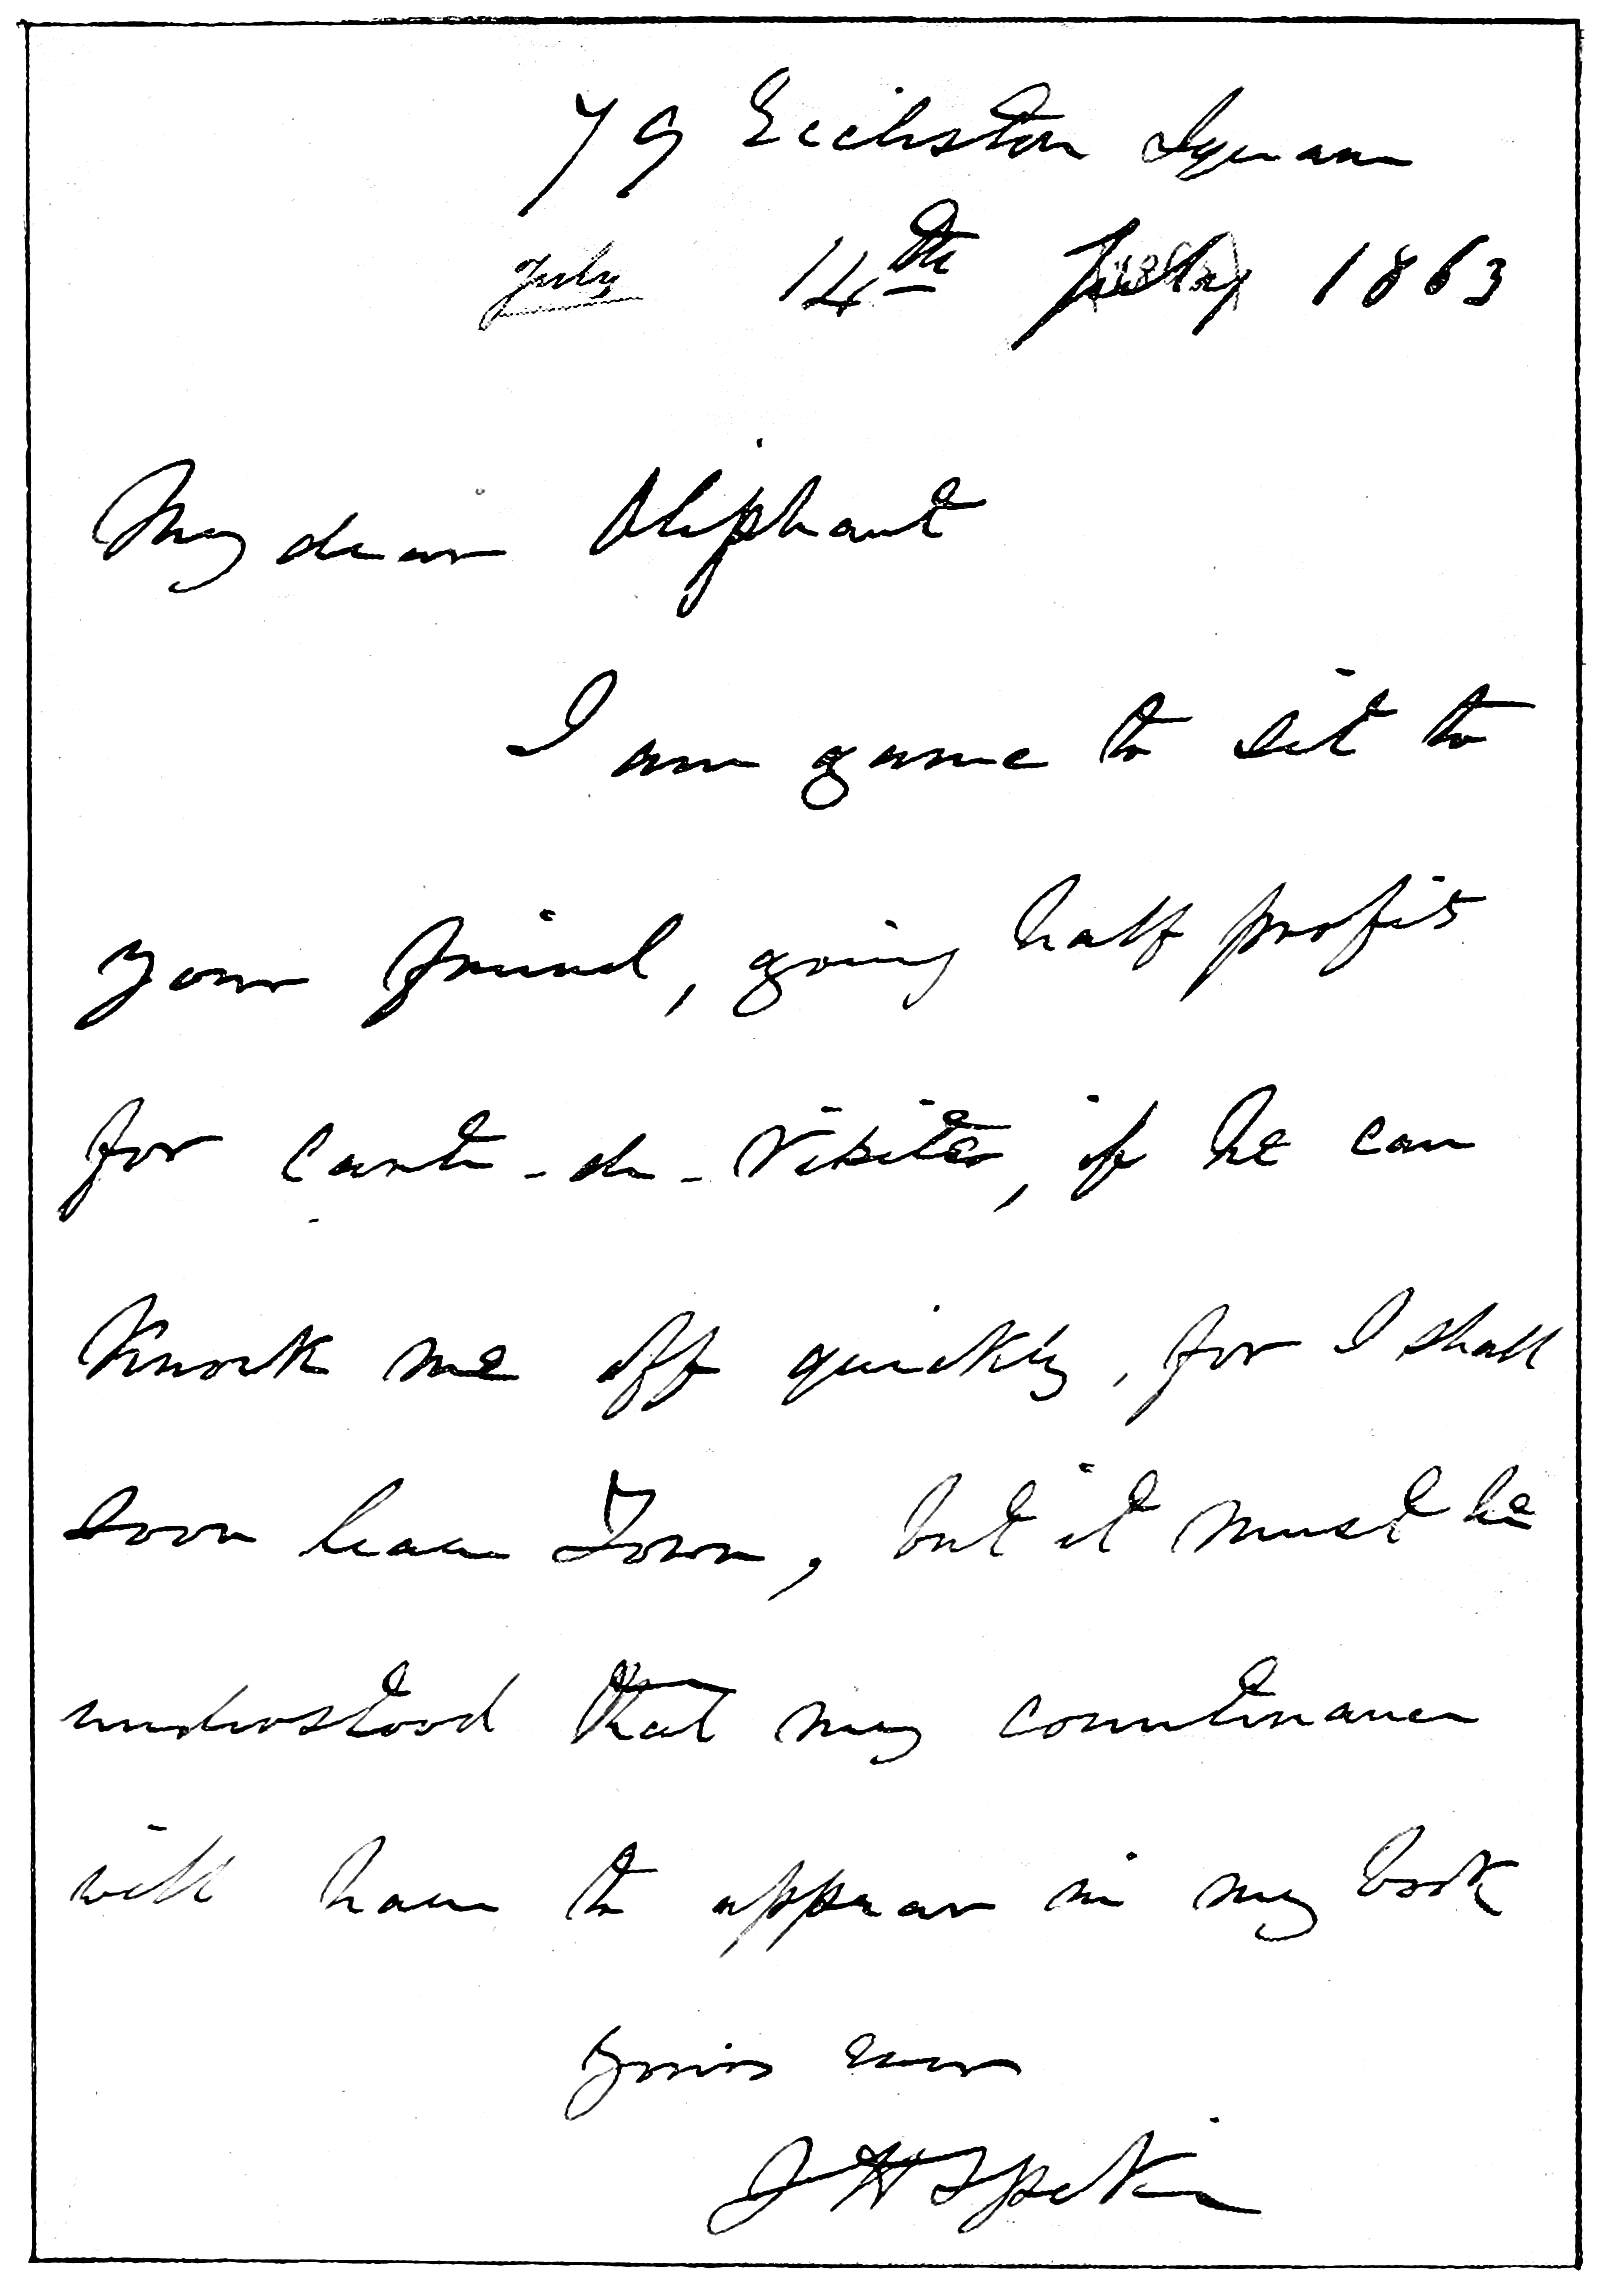 79 Eccleston Square
July 14th July 1863
My dear Oliphant
I am game to sit to
your friend, going half profits
for Carte-de-Visites, if he can
Knock me off quickly, for I shall
soon leave Town, but it must be
understood that my countenance
will have to appear in my book
Yours ever
J H Speke